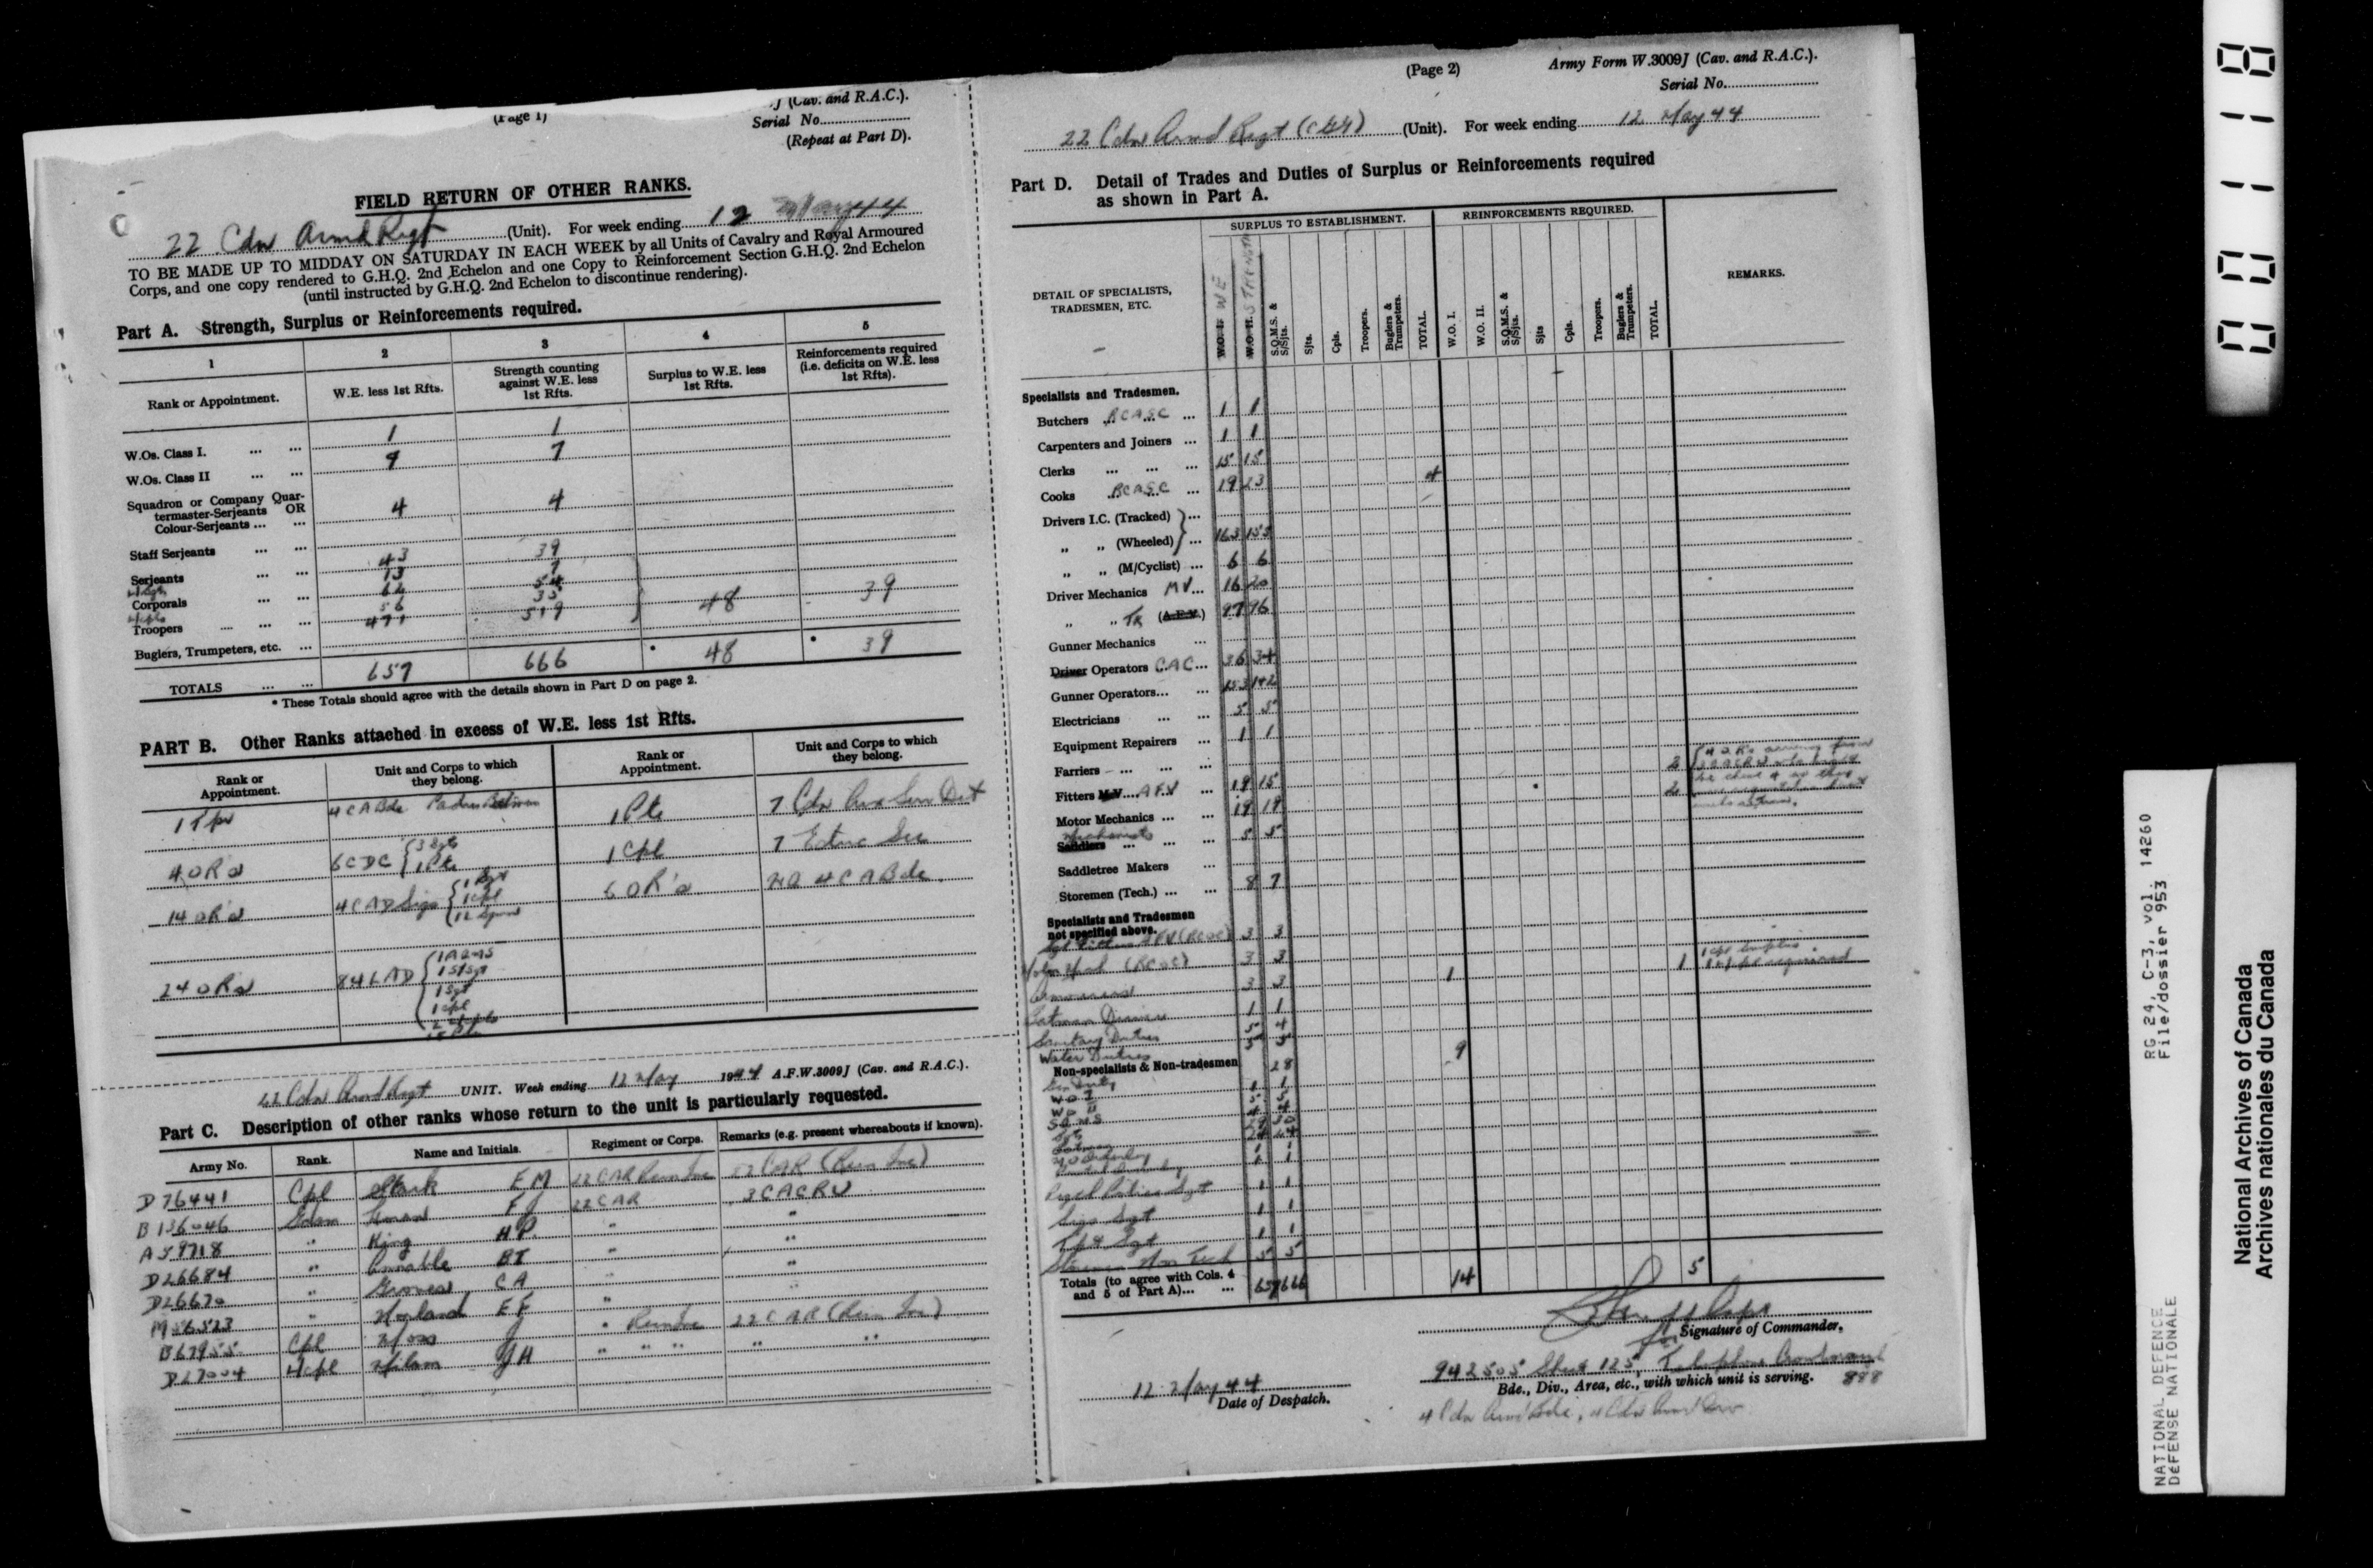 (Page 1)
J (Cav. and R.A.C.).
Serial No.
(Repeat at Part D).
FIELD RETURN OF OTHER RANKS.
22 Cdn Armd Regt (Unit). For week ending 12 May 44
TO BE MADE UP TO MIDDAY ON SATURDAY IN EACH WEEK by all Units of Cavalry and Royal Armoured
Corps, and one copy rendered to G.H.Q. 2nd Echelon and one Copy to Reinforcement Section G.H.Q. 2nd Echelon
(until instructed by G.H.Q. 2nd Echelon to discontinue rendering).
Part A. Strength, Surplus or Reinforcements required.
1 2 3 4 5
Rank or Appointment. W.E. less 1st Rfts. Strength counting against W.E. less 1st Rfts. Surplus to W.E. less 1st Rfts. Reinforcements required (i.e. deficits on W.E. less 1st Rfts).
W.Os. Class I. ... ... 1 1
W.Os. Class II ... ... 9 7
Squadron or Company Quar-
termaster-Serjeants OR
Colour-Serjeants ... ... 4 4
Staff Serjeants ... ...
Serjeants ... ... 43 39
13 7
Corporals ... ... 62 54
56 35
Troopers ... ... ... 471 519 48 39
Buglers, Trumpeters, etc. ...
TOTALS ... ... 657 666 * 48 * 39
* These Totals should agree with the details shown in Part D on page 2.
PART B. Other Ranks attached in excess of W.E. less 1st Rfts.
Rank or Appointment. Unit and Corps to which they belong. Rank or Appointment. Unit and Corps to which they belong.
1 Tpr 4 CA Bde Padres Batman 1 Pte 7 Cdn Aux Serv Det
4 OR's 6 CDC 3 Sgts 1 Pte 1 Cpl 7 Educ Sec
14 OR's 4 CAD Sigs 1 Sgt 1 Cpl 12 Sigmn 6 OR's HQ 4 CA Bde.
24 ORs 84 LAD 1 AQMS
1 S/Sgt
1 Sgt
1 Cpl
22 Cdn Armd Regt UNIT. Week ending 12 May 1944 A.F.W.3009J (Cav. and R.A.C.).
Part C. Description of other ranks whose return to the unit is particularly requested.
Army No. Rank. Name and Initials. Regiment or Corps. Remarks (e.g. present whereabouts if known).
D 76441 Cpl Stark F M 22 CAR
B 136046 F J 22 CAR 3 CACRU
A 59718 " King H P. " "
D 26684 " Annable B T " "
D26670 " Groves C A " "
M 36523 " Hogland E F
B 67955 Cpl Moss J
D 27004 L/Cpl Milson J H
(Page 2) Army Form W.3009J (Cav. and R.A.C.).
Serial No.
22 Cdn Armd Regt (CGG) (Unit). For week ending 12 May 44
Part D. Detail of Trades and Duties of Surplus or Reinforcements required
as shown in Part A.
DETAIL OF SPECIALISTS, TRADESMEN, ETC. SURPLUS TO ESTABLISHMENT. REINFORCEMENTS REQUIRED. REMARKS.
WE STRENGTH S.Q.M.S. & S/Sjts. Sjts. Cpls. Troopers. Buglers & Trumpeters. TOTAL. W.O. I. W.O. II. S.Q.M.S. & S/Sjts. Sjts Cpls. Troopers. Buglers & Trumpeters. TOTAL.
Specialists and Tradesmen.
Butchers RCASC ... 1 1
Carpenters and Joiners ... 1 1
Clerks ... ... ... 15 15
Cooks RCASC ... 19 23 4
Drivers I.C. (Tracked) ...
" " (Wheeled) ... 163 153
" " (M/Cyclist) ... 6 6
Driver Mechanics MV ... 16 20
" " Tk (A.F.V.) 97 96
Gunner Mechanics ...
Driver Operators CAC ... 36 34
Gunner Operators... ... 153 142
Electricians ... ... 5 5
Equipment Repairers ... 1 1
Farriers ... ... ...
Fitters MV AFV ... 19 15 2
Motor Mechanics ... ... 19 19 2
Saddlers ... ... ... 5 5
Saddletree Makers ...
Storemen (Tech.) ... ... 8 7
Specialists and Tradesmen
not specified above.
3 3
(RCOC) 3 3
Armourers 3 3 1 1
Batman Drivers 1 1
Sanitary Duties 5 4
Water Duties 5 5
Non-specialists & Non-tradesmen
Gen Duty 28 9
WO I 1 1
WO II 5 5
SQMS 4 4
Sgts
Batmen
MO Orderly 1 1
1 1
Regtl Police Sgt 1 1
Sigs Sgt 1 1
Tpt Sgt 1 1
Storemen Non Tech 5 5
Totals (to agree with Cols. 4
and 5 of Part A)... ... 657 666 14 5
Signature of Commander.
12 May 44
Date of Despatch.
942505 Sheet 125, Telephone
Bde., Div., Area, etc., with which unit is serving. 888
4 Cdn Armd Bde, 4 Cdn Armd Div
00118
RG 24, C-3, vol. 14260
File/dossier 953
NATIONAL DEFENCE
DÉFENSE NATIONALE
National Archives of Canada
Archives nationales du Canada